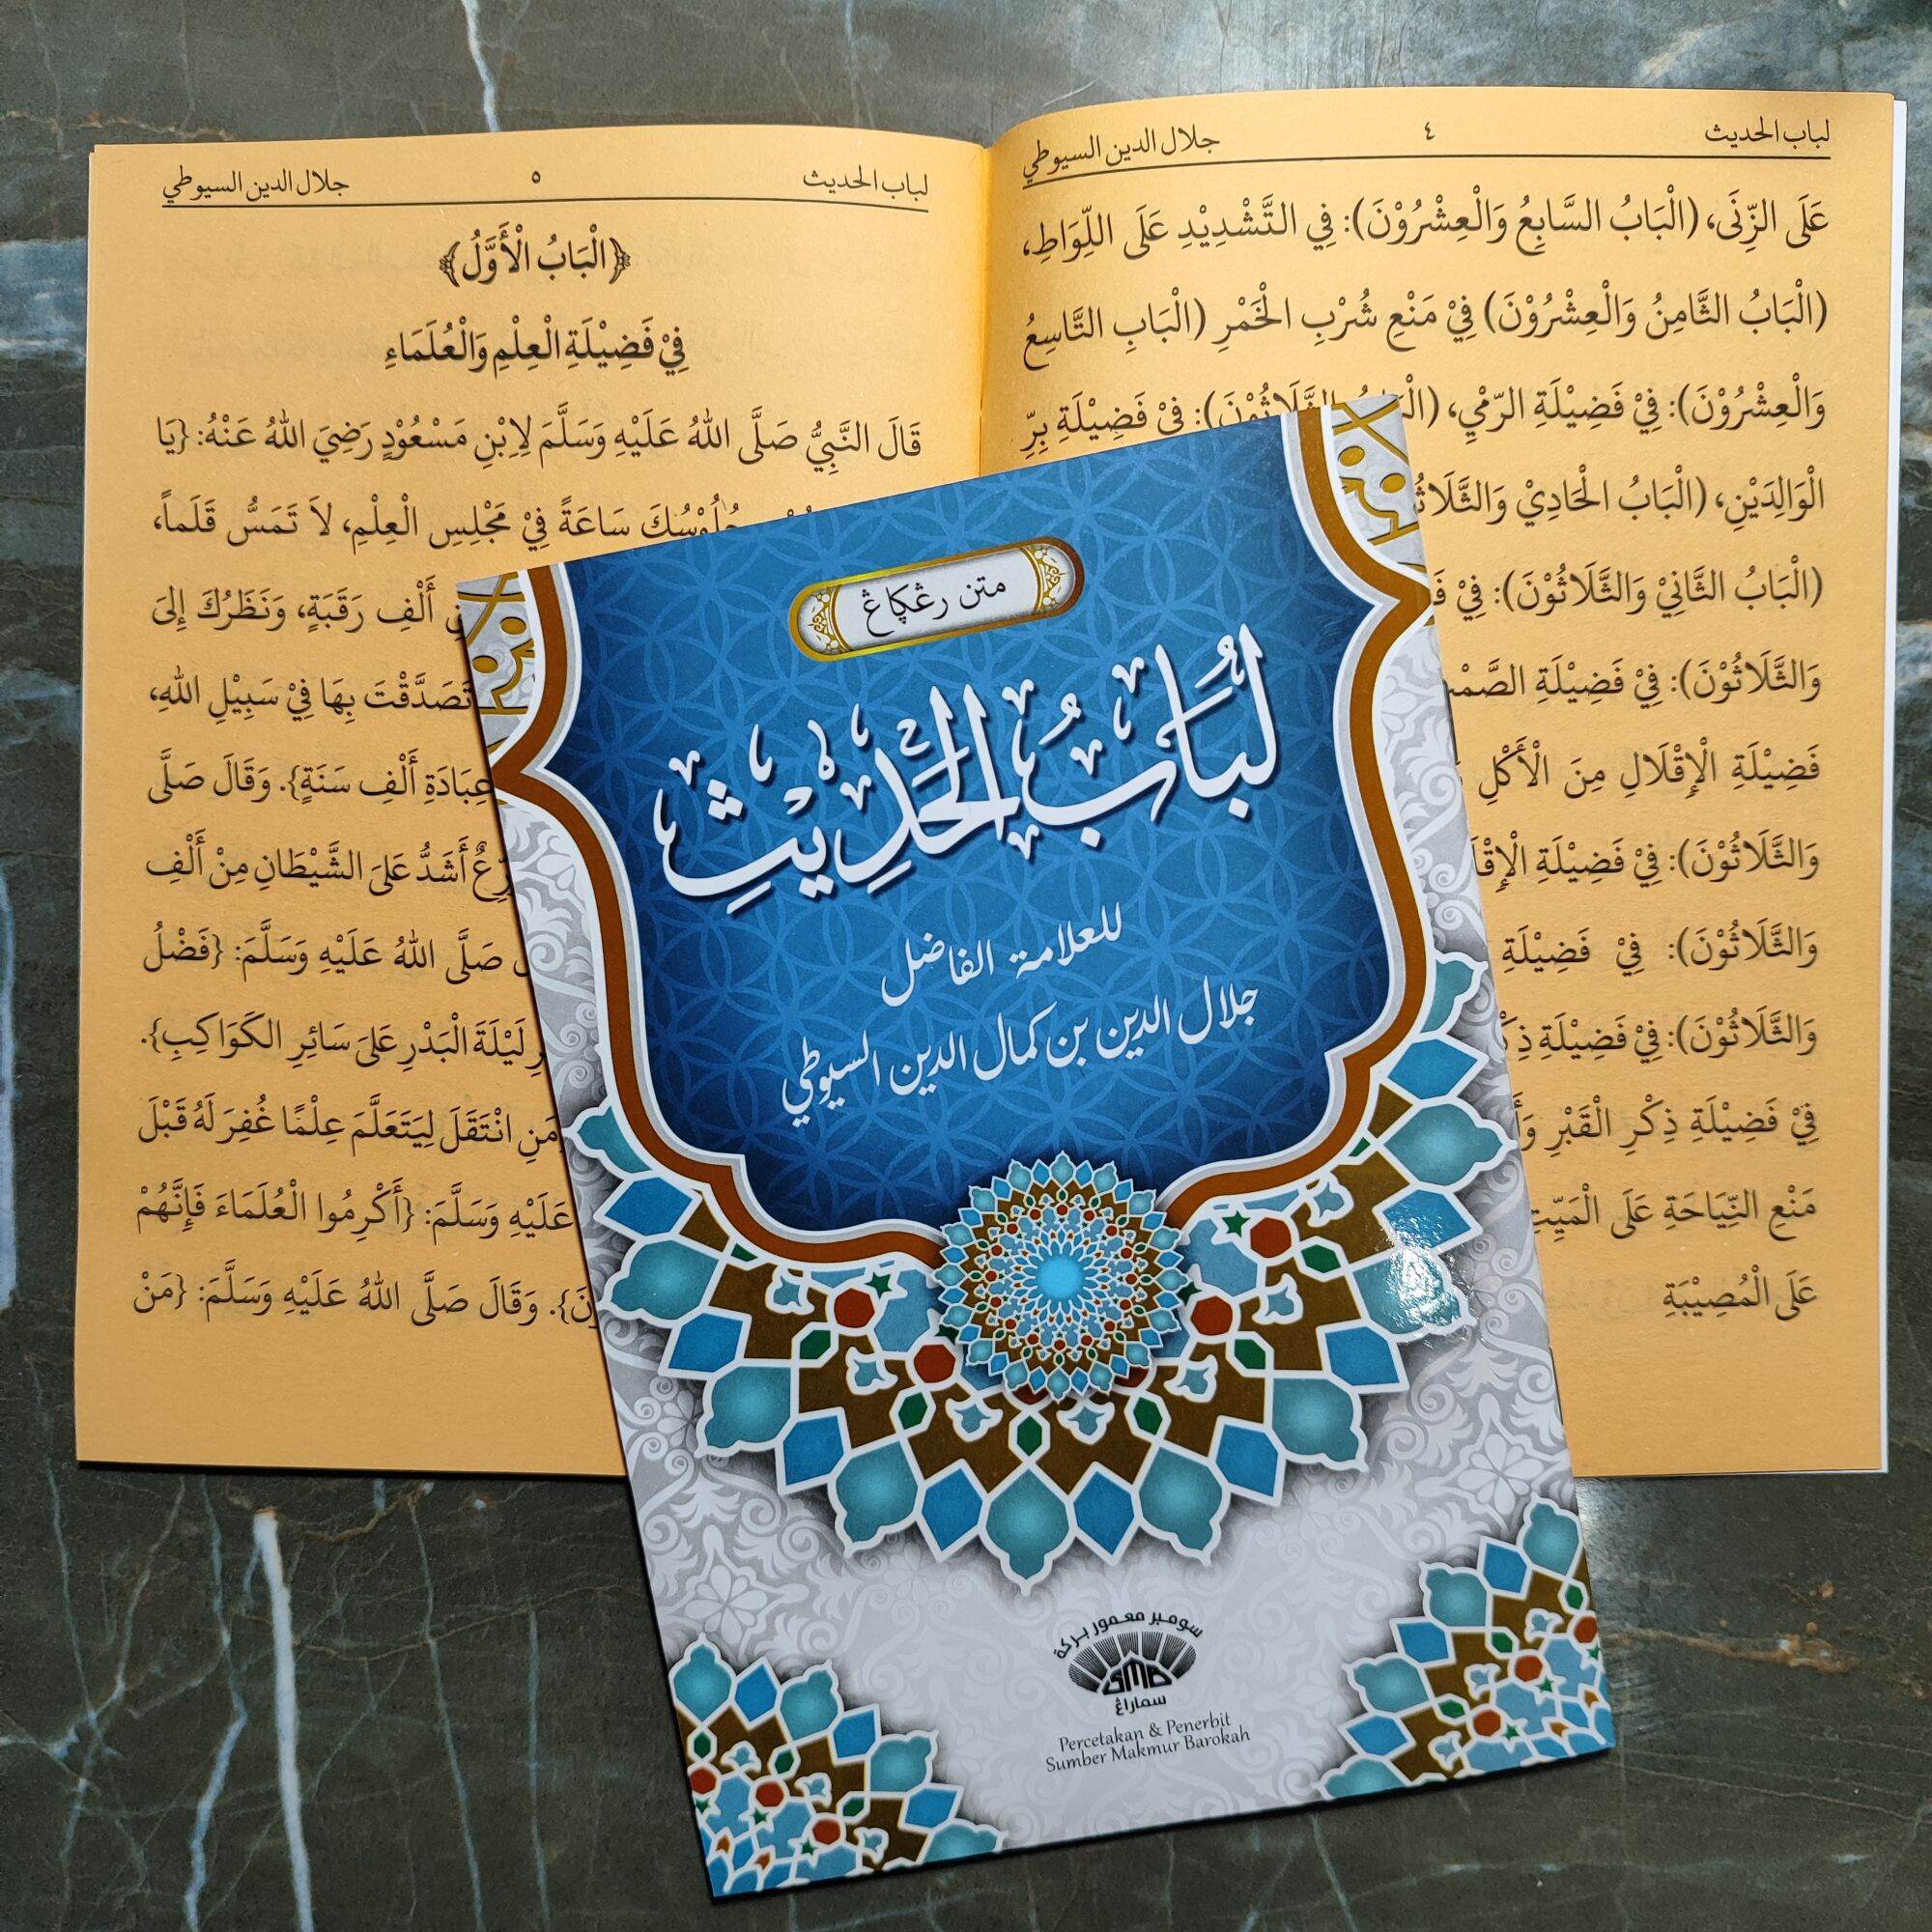 لباب الحديث
٤
جلال الدين السيوطي
عَلَى الزِّنَى، (الْبَابُ السَّابِعُ وَالْعِشْرُوْنَ): فِي التَّشْدِيْدِ عَلَى اللِّوَاطِ،
(الْبَابُ الثَّامِنُ وَالْعِشْرُوْنَ) فِيْ مَنْعِ شُرْبِ الْخَمْرِ (الْبَابِ التَّاسِعُ
وَالْعِشْرُوْنَ): فِيْ فَضِيْلَةِ الرّمْيِ، (الْبَابُ الثَّلَاثُوْنَ): فِيْ فَضِيْلَةِ بِرِّ
الْوَالِدَيْنِ، (الْبَابُ الْحَادِيْ
(الْبَابُ الثَّانِيْ وَالثَّلَاثُوْنَ): فِيْ
وَالثَّلَاثُوْنَ): فِيْ فَضِيْلَةِ
فَضِيْلَةِ الْإِقْلَالِ مِنَ الْأَكْلِ
وَالثَّلَاثُوْنَ): فِيْ فَضِيْلَةِ
وَالثَّلَاثُوْنَ): فِيْ فَضِيْلَةِ
وَالثَّلَاثُوْنَ): فِيْ فَضِيْلَةِ
فِيْ فَضِيْلَةِ ذِكْرِ الْقَبْرِ
مَنْعِ النِّيَاحَةِ عَلَى الْمَيِّتِ
عَلَى الْمُصِيْبَةِ
لباب الحديث
٥
جلال الدين السيوطي
﴿الْبَابُ الْأَوَّلُ﴾
فِيْ فَضِيْلَةِ الْعِلْمِ وَالْعُلَمَاءِ
قَالَ النَّبِيُّ صَلَّى اللهُ عَلَيْهِ وَسَلَّمَ لِاِبْنِ مَسْعُوْدٍ رَضِيَ اللهُ عَنْهُ: {يَا
جُلُوْسُكَ سَاعَةً فِيْ مَجْلِسِ الْعِلْمِ، لاَ تَمَسُّ قَلَماً،
أَلْفِ رَقَبَةٍ، وَنَظَرُكَ إِلَى
تَصَدَّقْتَ بِهَا فِيْ سَبِيْلِ اللهِ،
عِبَادَةِ أَلْفِ سَنَةٍ}. وَقَالَ صَلَّى
أَشَدُّ عَلَى الشَّيْطَانِ مِنْ أَلْفِ
صَلَّى اللهُ عَلَيْهِ وَسَلَّمَ: {فَضْلُ
لَيْلَةَ الْبَدْرِ عَلَى سَائِرِ الكَوَاكِبِ}.
مَنِ انْتَقَلَ لِيَتَعَلَّمَ عِلْمًا غُفِرَ لَهُ قَبْلَ
عَلَيْهِ وَسَلَّمَ: {أَكْرِمُوا الْعُلَمَاءَ فَإِنَّهُمْ
وَقَالَ صَلَّى اللهُ عَلَيْهِ وَسَلَّمَ: {مَنْ
متن رڠكاڠ
لُبَابُ الْحَدِيْثِ
للعلامة الفاضل
جلال الدين بن كمال الدين السيوطي
سومبر معمور بركة
SMB
سماراڠ
Percetakan & Penerbit
Sumber Makmur Barokah